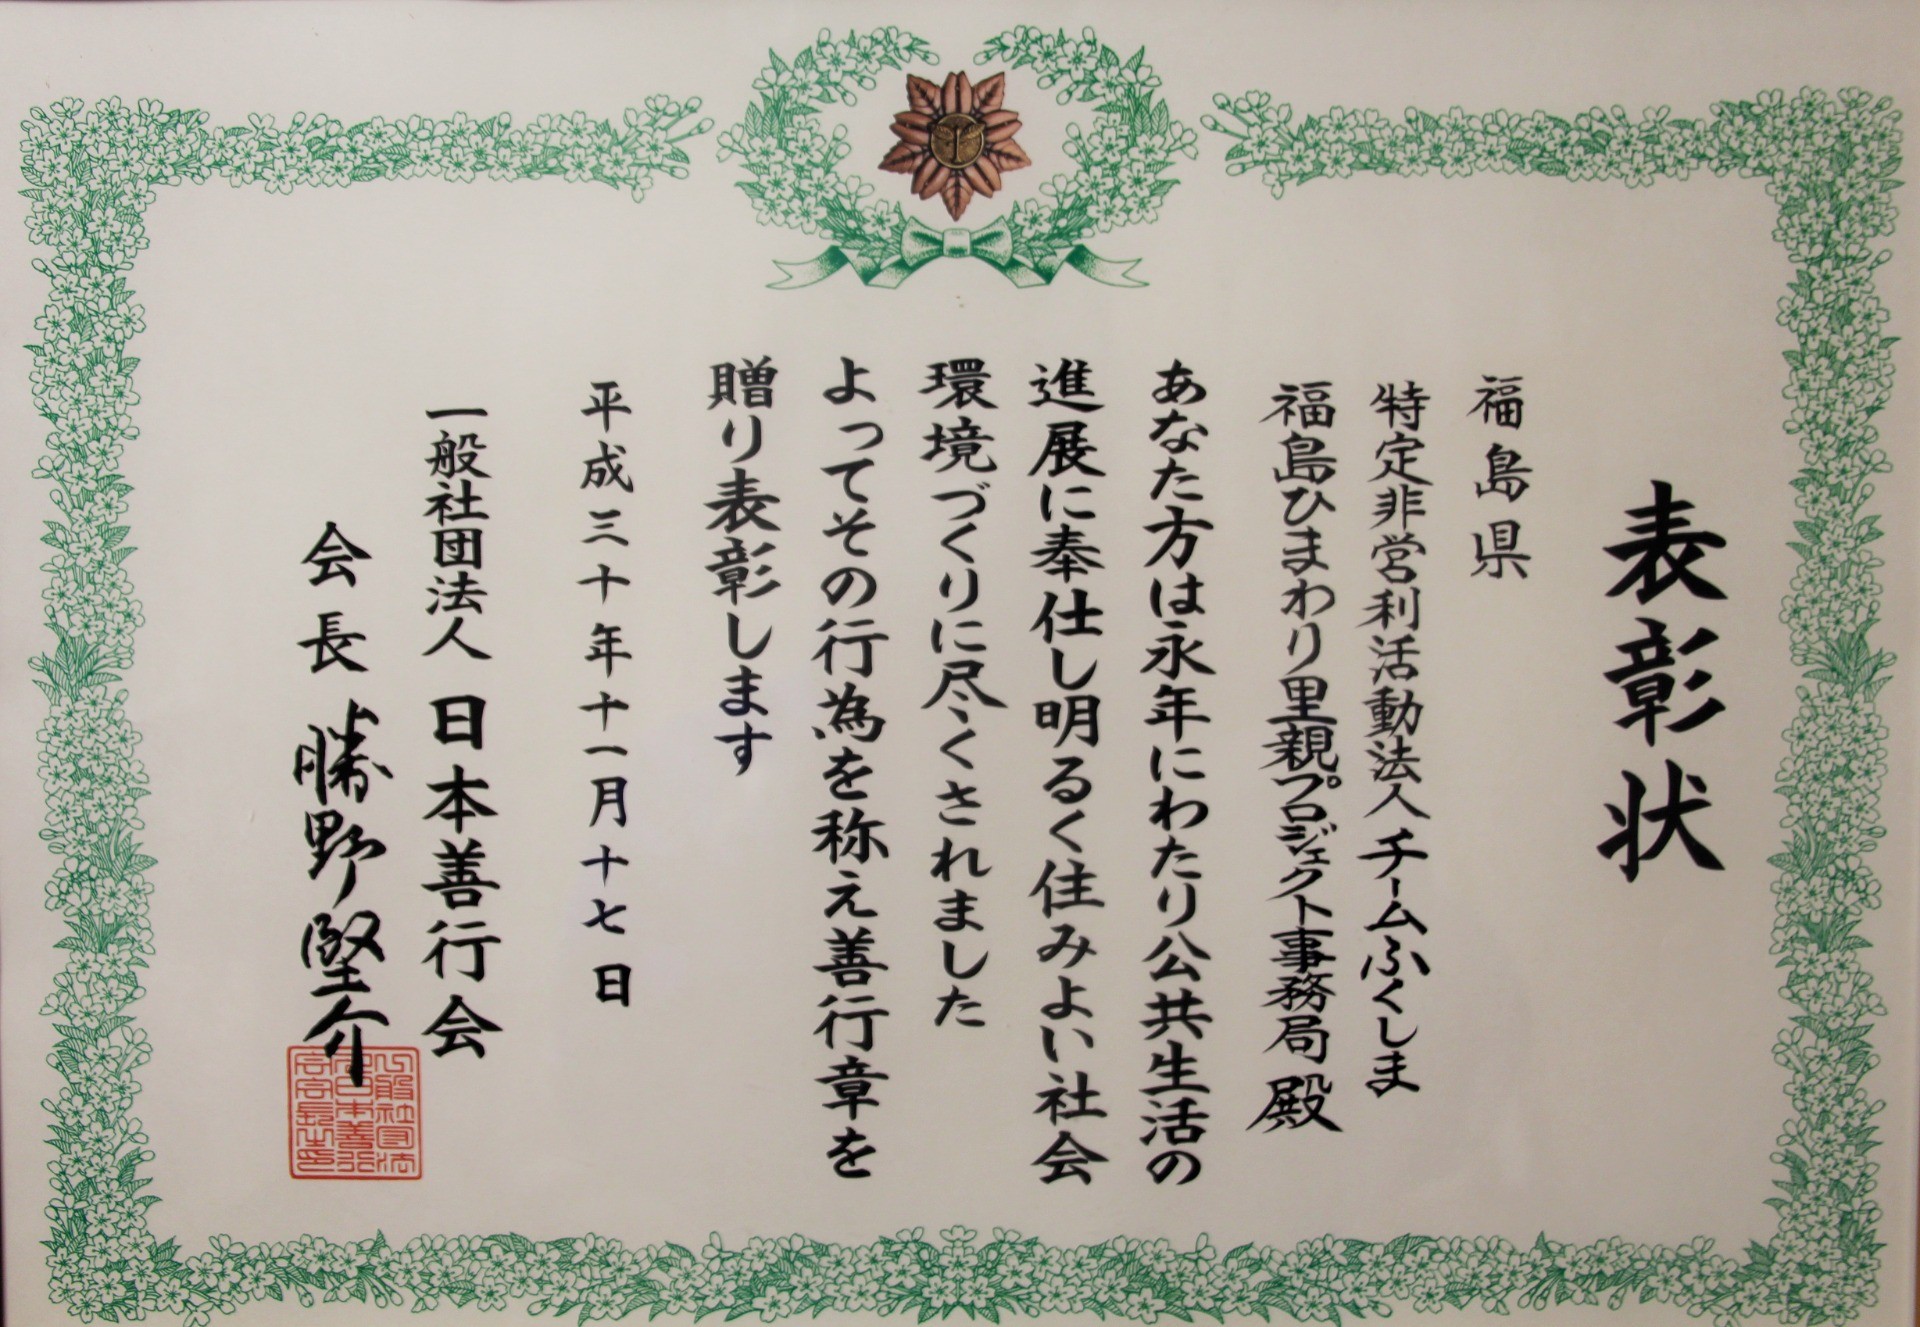 表彰状
福島県
特定非営利活動法人チームふくしま
福島ひまわり里親プロジェクト事務局 殿
あなた方は永年にわたり公共生活の
進展に奉仕し明るく住みよい社会
環境づくりに尽くされました
よってその行為を称え善行章を
贈り表彰します
平成三十年十一月十七日
一般社団法人 日本善行会
会長 勝野堅介
一般社団法
人日本善行
会会長之印